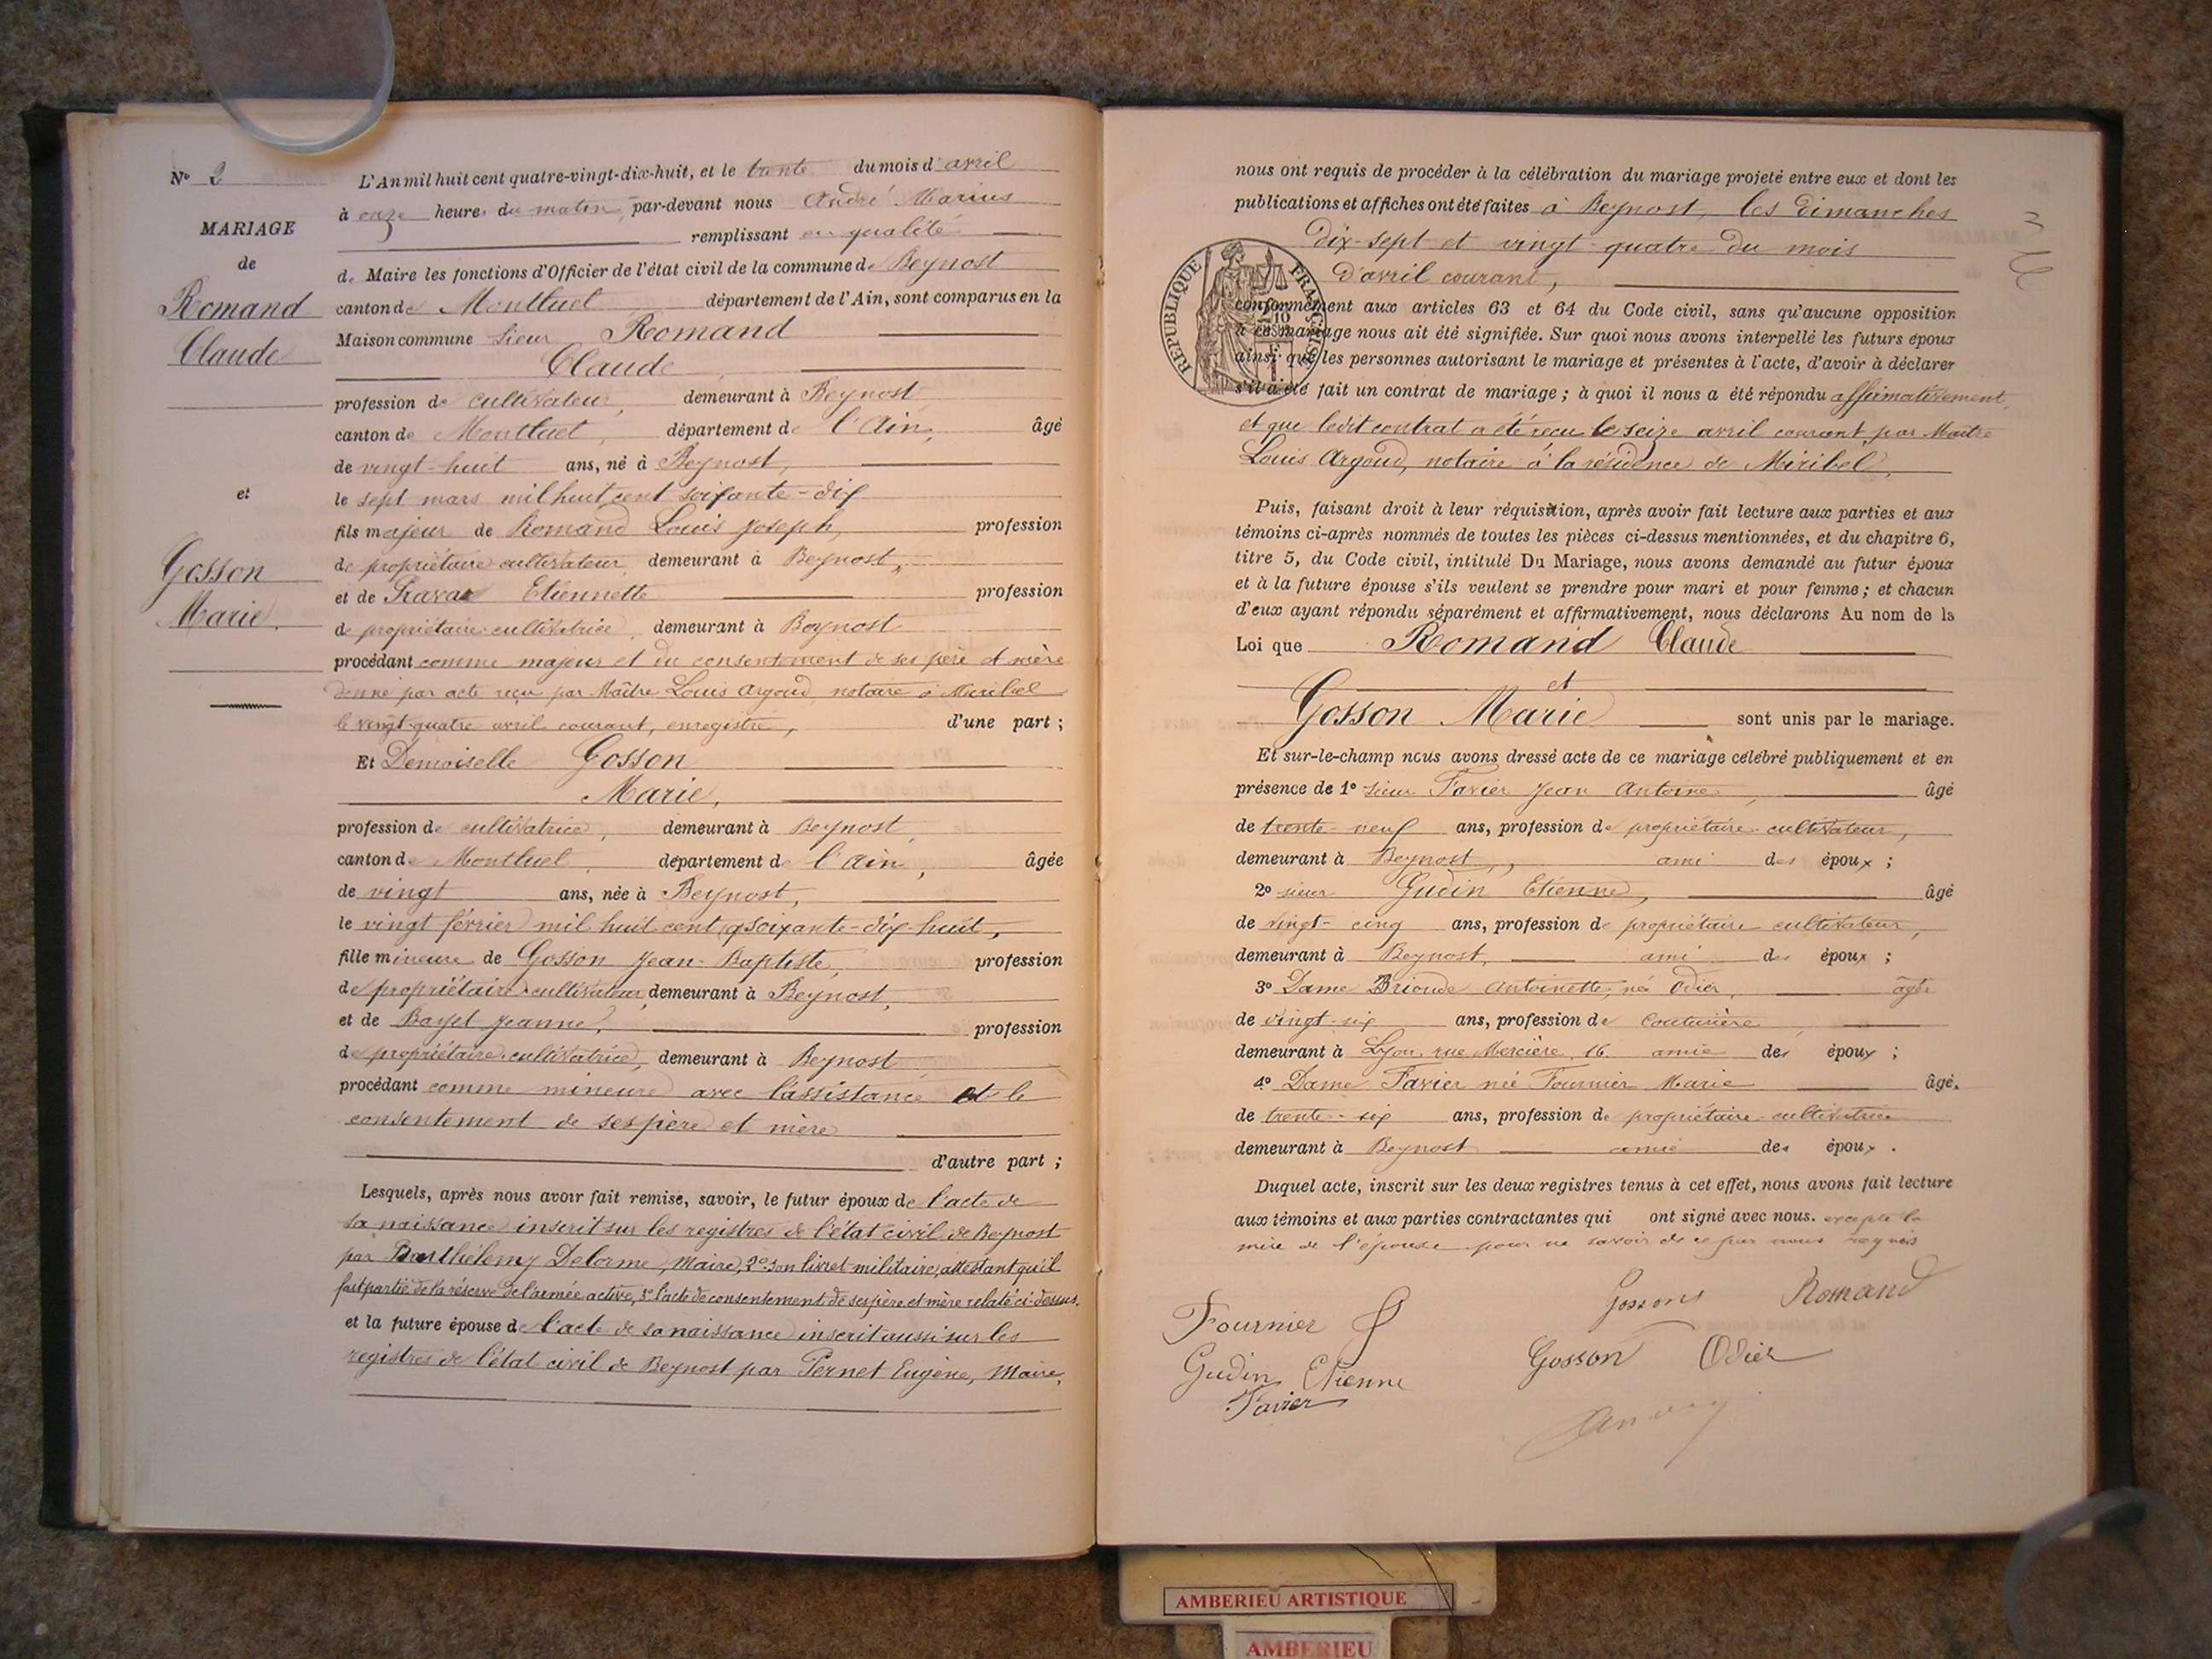 N° 2
MARIAGE
de
Romand
Claude
et
Gosson
Marie
L'An mil huit cent quatre-vingt-dix-huit, et le trente du mois d'avril
à onze heures du matin, par-devant nous André Marius
remplissant en qualité
de Maire les fonctions d'Officier de l'état civil de la commune de Beynost
canton de Montluel département de l'Ain, sont comparus en la
Maison commune sieur Romand
Claude
profession de cultivateur, demeurant à Beynost
canton de Montluel, département de l'Ain, âgé
de vingt-huit ans, né à Beynost,
le sept mars mil huit cent soixante-dix
fils majeur de Romand Louis Joseph, profession
de propriétaire cultivateur, demeurant à Beynost,
et de Etiennette profession
de propriétaire-cultivatrice, demeurant à Beynost
procédant comme majeur et du consentement de ses père et mère
donné par acte reçu par Maître Louis Argoud, notaire à Miribel
le vingt-quatre avril courant, enregistré, d'une part ;
Et Demoiselle Gosson
Marie,
profession de cultivatrice, demeurant à Beynost,
canton de Montluel, département de l'Ain, âgée
de vingt ans, née à Beynost,
le vingt février mil huit cent soixante-dix-huit,
fille mineure de Gosson Jean-Baptiste, profession
de propriétaire-cultivateur, demeurant à Beynost,
et de Jeanne, profession
de propriétaire-cultivatrice, demeurant à Beynost
procédant comme mineure avec l'assistance et le
consentement de ses père et mère
d'autre part ;
Lesquels, après nous avoir fait remise, savoir, le futur époux de l'acte de
sa naissance inscrit sur les registres de l'état civil de Beynost
par Barthélemy Delorme, Maire, 2° son livret militaire, attestant qu'il
fait partie de la réserve de l'armée active, 3° l'acte de consentement de ses père et mère relaté ci-dessus.
et la future épouse de l'acte de sa naissance inscrit aussi sur les
registres de l'état civil de Beynost par Pernet Eugène, Maire,
nous ont requis de procéder à la célébration du mariage projeté entre eux et dont les
publications et affiches ont été faites à Beynost, les dimanches
dix-sept et vingt-quatre du mois
d'avril courant,
RÉPUBLIQUE FRANÇAISE
conformément aux articles 63 et 64 du Code civil, sans qu'aucune opposition
à ce mariage nous ait été signifiée. Sur quoi nous avons interpellé les futurs époux
ainsi que les personnes autorisant le mariage et présentes à l'acte, d'avoir à déclarer
s'il a été fait un contrat de mariage ; à quoi il nous a été répondu affirmativement,
et que ledit contrat a été reçu le seize avril courant par Maître
Louis Argoud, notaire à la résidence de Miribel,
Puis, faisant droit à leur réquisition, après avoir fait lecture aux parties et aux
témoins ci-après nommés de toutes les pièces ci-dessus mentionnées, et du chapitre 6,
titre 5, du Code civil, intitulé Du Mariage, nous avons demandé au futur époux
et à la future épouse s'ils veulent se prendre pour mari et pour femme ; et chacun
d'eux ayant répondu séparément et affirmativement, nous déclarons Au nom de la
Loi que Romand Claude
et
Gosson Marie sont unis par le mariage.
Et sur-le-champ nous avons dressé acte de ce mariage célébré publiquement et en
présence de 1° sieur Favier Jean Antoine, âgé
de trente-neuf ans, profession de propriétaire-cultivateur,
demeurant à Beynost, ami des époux ;
2° sieur Gudin Etienne, âgé
de vingt-cinq ans, profession de propriétaire cultivateur,
demeurant à Beynost, ami des époux ;
3° Dame Brioude Antoinette, né Odier, âgée
de vingt-six ans, profession de couturière,
demeurant à Lyon, rue Mercière, 16 amie des époux ;
4° Dame Favier née Fournier Marie âgée
de trente-six ans, profession de propriétaire-cultivatrice
demeurant à Beynost amie des époux.
Duquel acte, inscrit sur les deux registres tenus à cet effet, nous avons fait lecture
aux témoins et aux parties contractantes qui ont signé avec nous. excepté la
mère de l'épouse pour ne savoir de ce par nous requis
Fournier
Gudin Etienne
Favier
Gosson
Romand
Gosson
Odier
AMBERIEU ARTISTIQUE
AMBERIEU